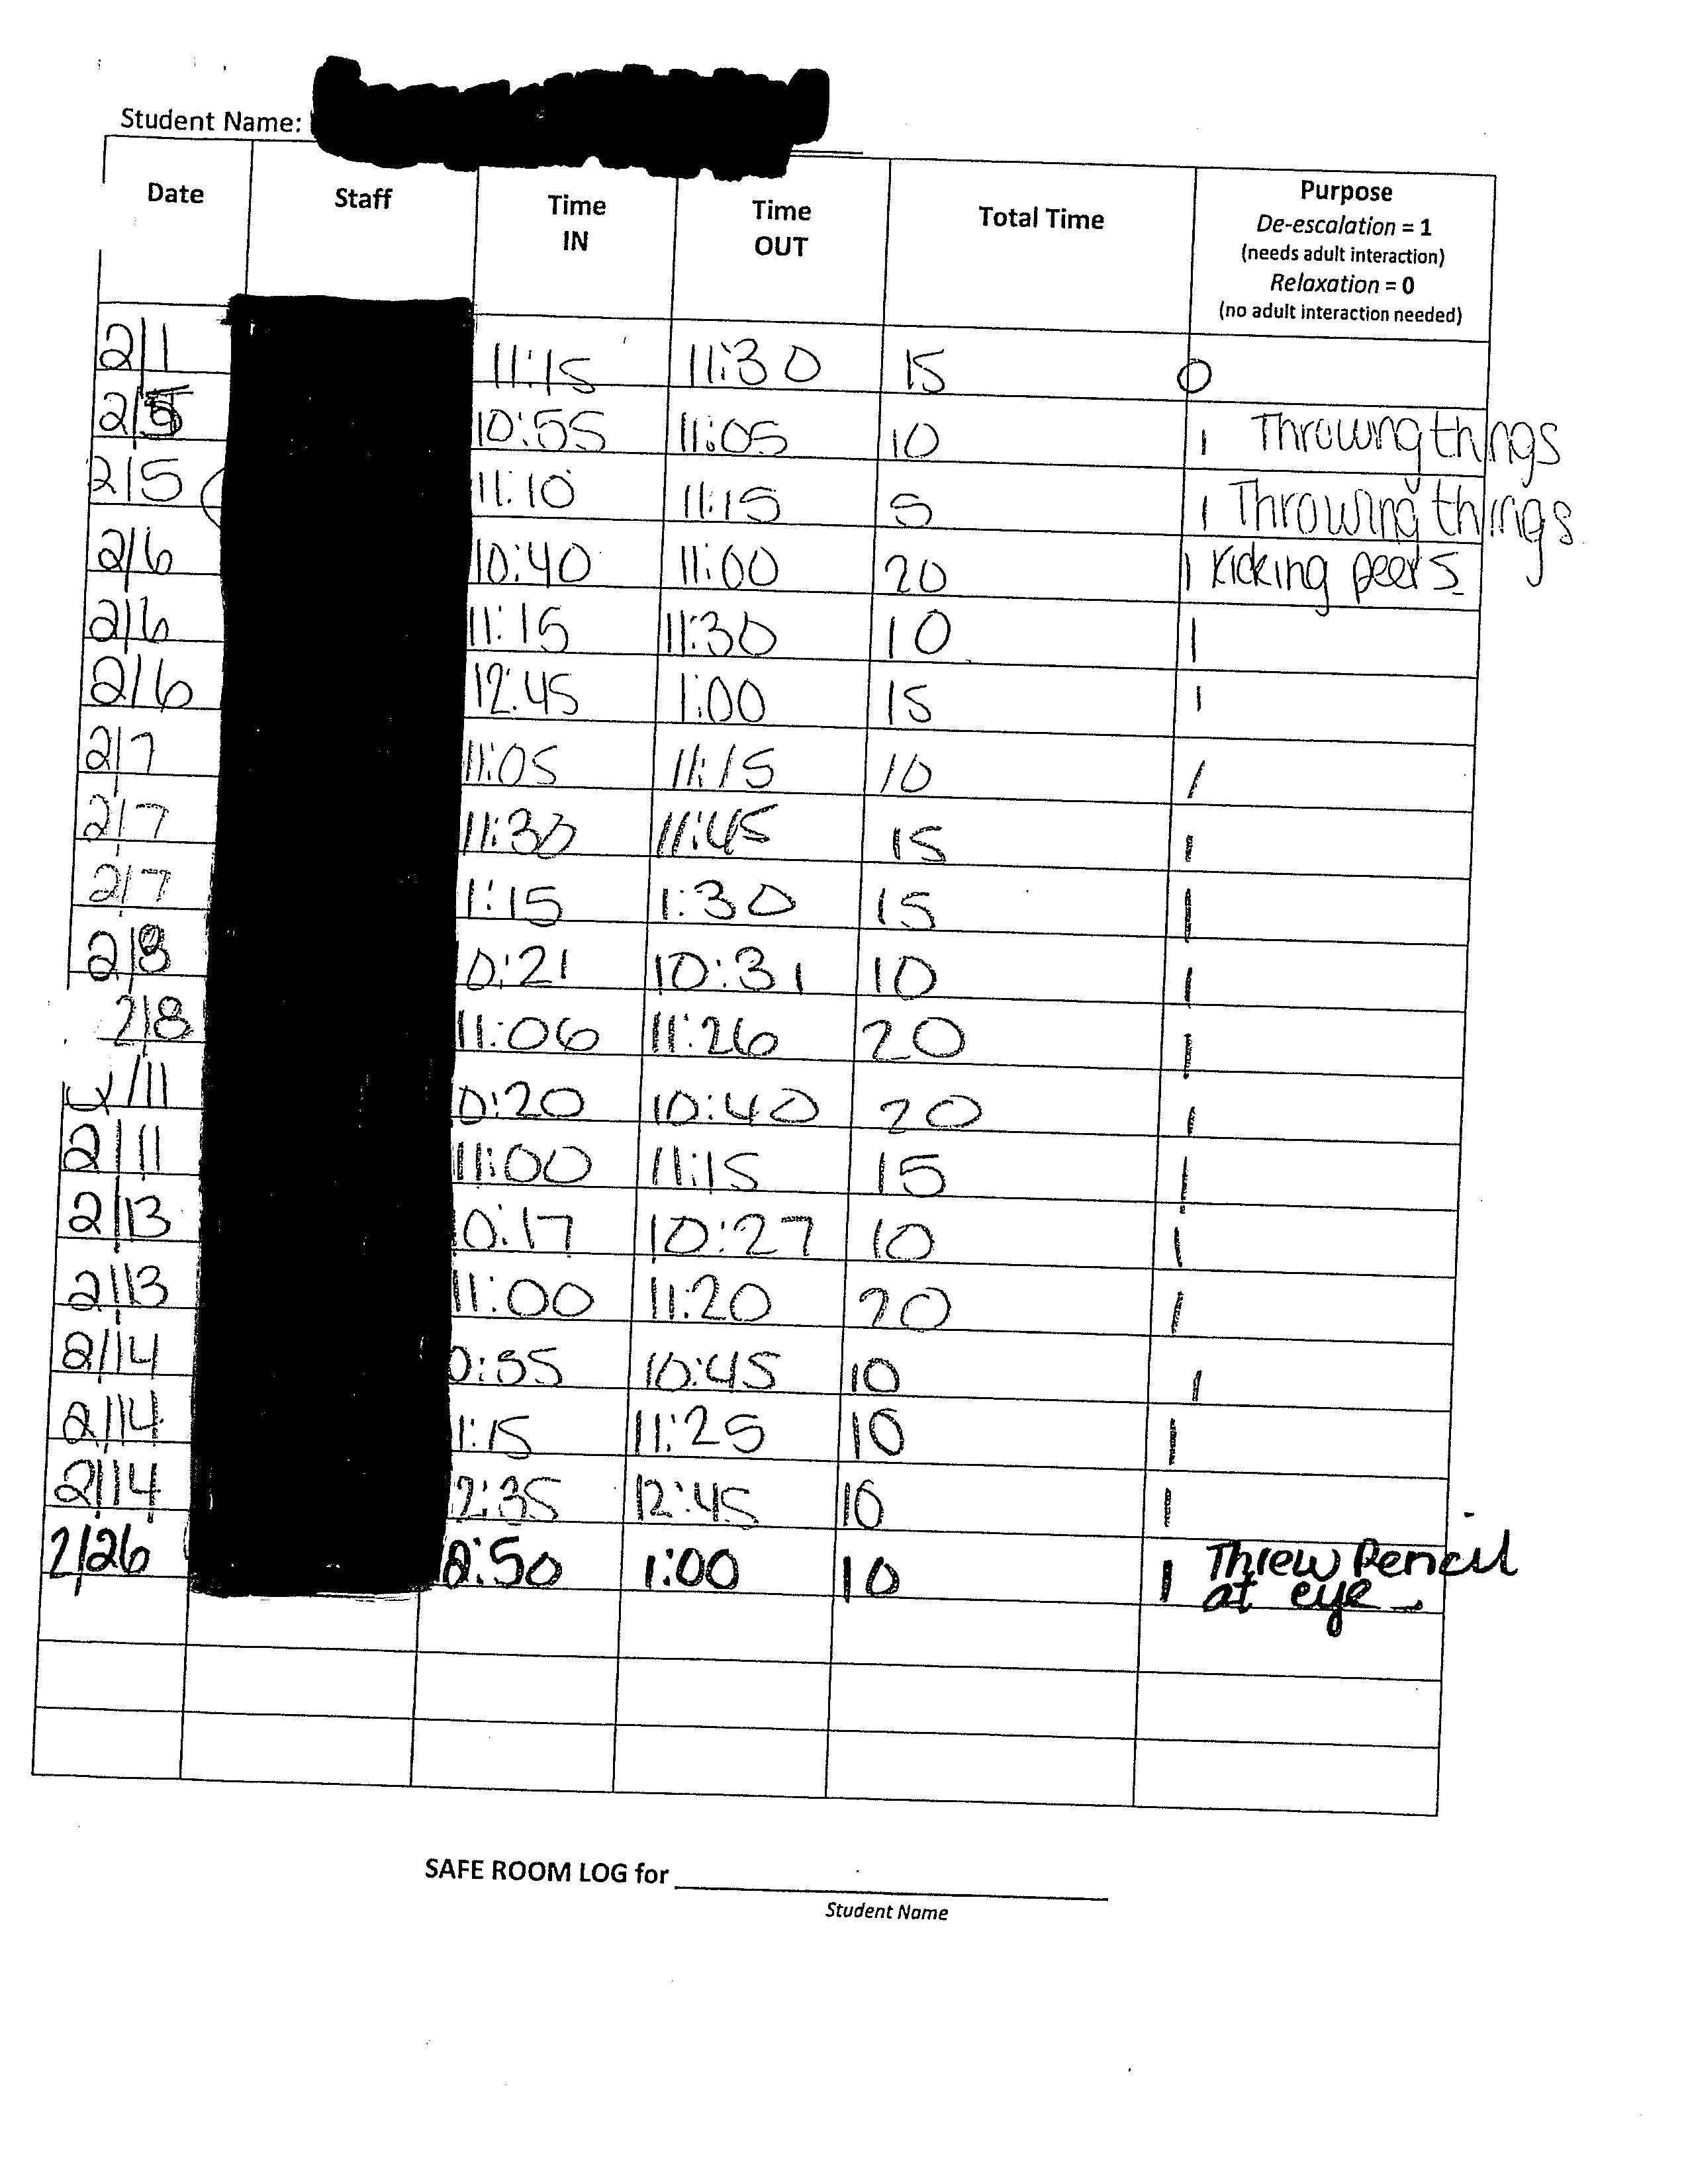 Student Name:
Date Staff Time IN Time OUT Total Time Purpose
De-escalation = 1
(needs adult interaction)
Relaxation = 0
(no adult interaction needed)
2/1 11:15 11:30 15 0
2/5 10:55 11:05 10 1 Throwing things
2/5 11:10 11:15 5 1 Throwing things
2/6 10:40 11:00 20 1 Kicking peers
2/6 11:15 11:30 10 1
2/6 12:45 1:00 15 1
2/7 11:05 11:15 10 1
2/7 11:30 11:45 15 1
2/7 1:15 1:30 15 1
2/8 0:21 10:31 10 1
2/8 11:06 11:26 20 1
/11 0:20 10:40 20 1
2/11 11:00 11:15 15 1
2/13 10:17 10:27 10 1
2/13 11:00 11:20 20 1
2/14 10:45 10 1
2/14 1:15 11:25 10 1
2/14 2:35 12:45 10 1
2/26 2:50 1:00 10 1 Threw Pencil
at eye
SAFE ROOM LOG for
Student Name